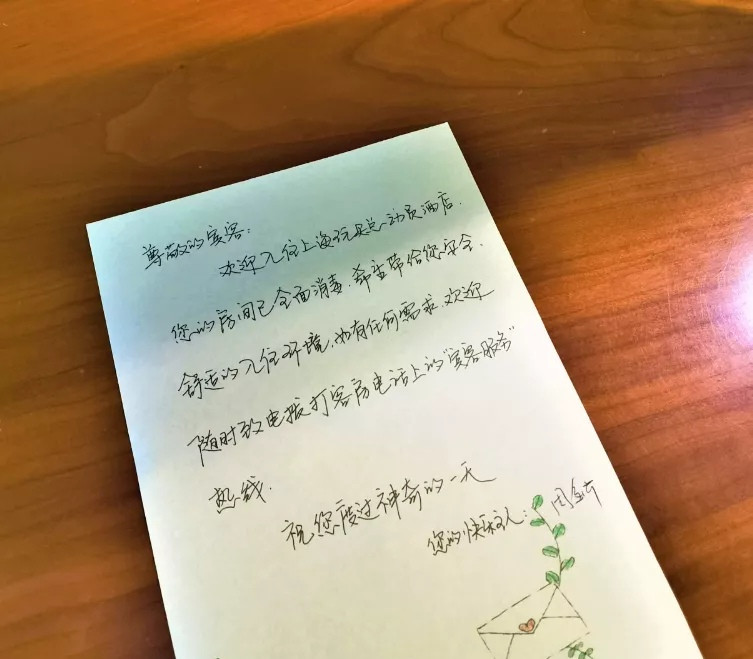 尊敬的宾客：
欢迎入住上海玩具总动员酒店.
您的房间已全面消毒.希望带给您安全、
舒适的入住环境.如有任何需求.欢迎
随时致电拨打客房电话上的"宾客服务"
热线.
祝您度过神奇的一天
您的快乐主人：周